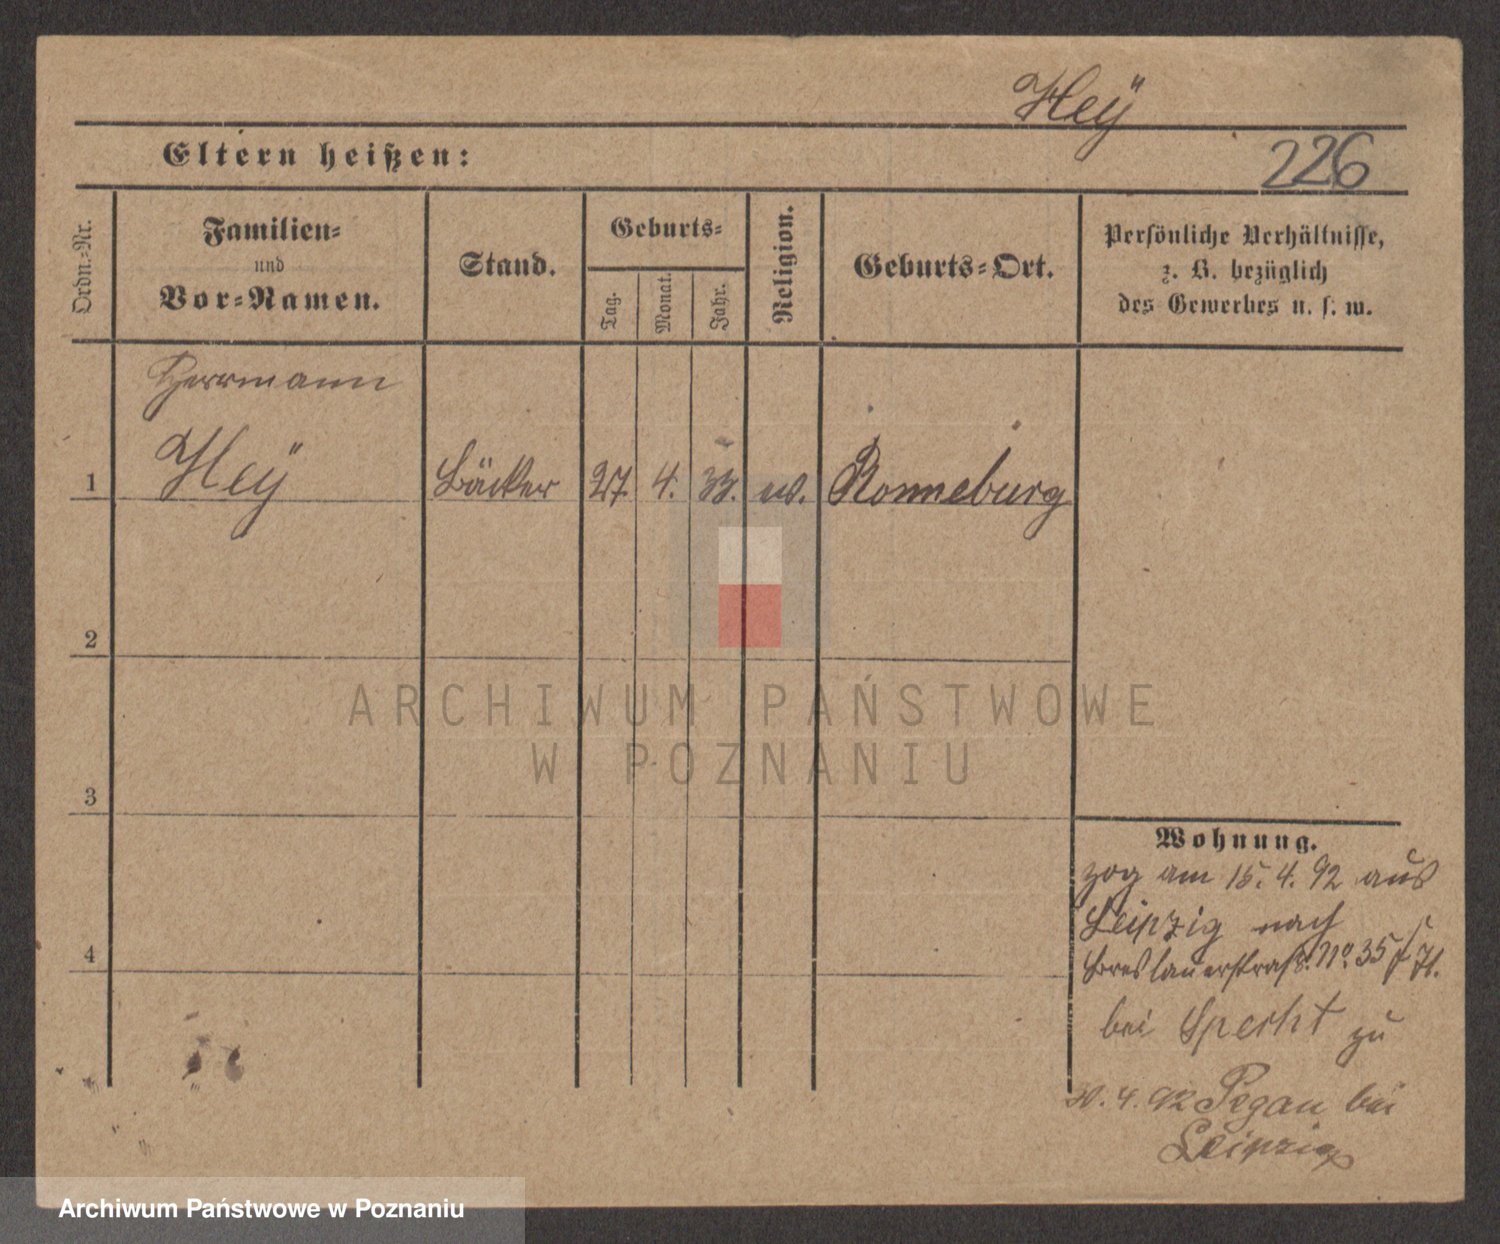 Heÿ
Eltern heißen:
226
Ordn.-Nr.
Familien-
und
Vor-Namen.
Stand.
Geburts-
Tag.
Monat.
Jahr.
Religion.
Geburts-Ort.
Persönliche Verhältnisse,
z. B. bezüglich
des Gewerbes u. s. w.
Herrmann
1 Heÿ Bäcker 27. 4. 33. ev. Ronneburg
2
3
4
Wohnung.
zog am 15. 4. 92 aus
Leipzig nach
Breslauerstraß. No. 35
bei Specht zu
30. 4. 92 Pegau bei
Leipzig
ARCHIWUM PAŃSTWOWE
W POZNANIU
Archiwum Państwowe w Poznaniu